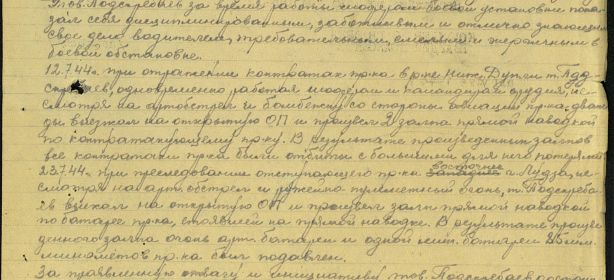 тов. Подскребаев за время работы шофером боевой установки пока-
зал себя дисциплинированным, заботливым и отлично знающим
свое дело водителем, требовательным, смелым и энергичным в
боевой обстановке.
12.7.44г. при отражении контратак пр-ка в р-не т. Подс-
кребаев, одновременно работая шофером и командиром орудия, не-
смотря на артобстрел и бомбежку со стороны авиации пр-ка, дваж-
ды выезжал на открытую ОП и произвел 2 залпа прямой наводкой
по контратакующему пр-ку. В результате произведенных залпов
все контратаки пр-ка были отбиты с большими для него потерями.
23.7.44г. при преследовании отступающего пр-ка восточнее г. Лудза, не-
смотря на арт. обстрел и ружейно пулеметный огонь, т. Подскреба-
ев выехал на открытую ОП и произвел залп прямой наводкой
по батарее пр-ка, стоявшей на прямой наводке. В результате произве-
денного залпа огонь арт. батареи и одной мин. батареи
минометов пр-ка был подавлен.
За проявленную отвагу и инициативу тов. Подскребаев достоин